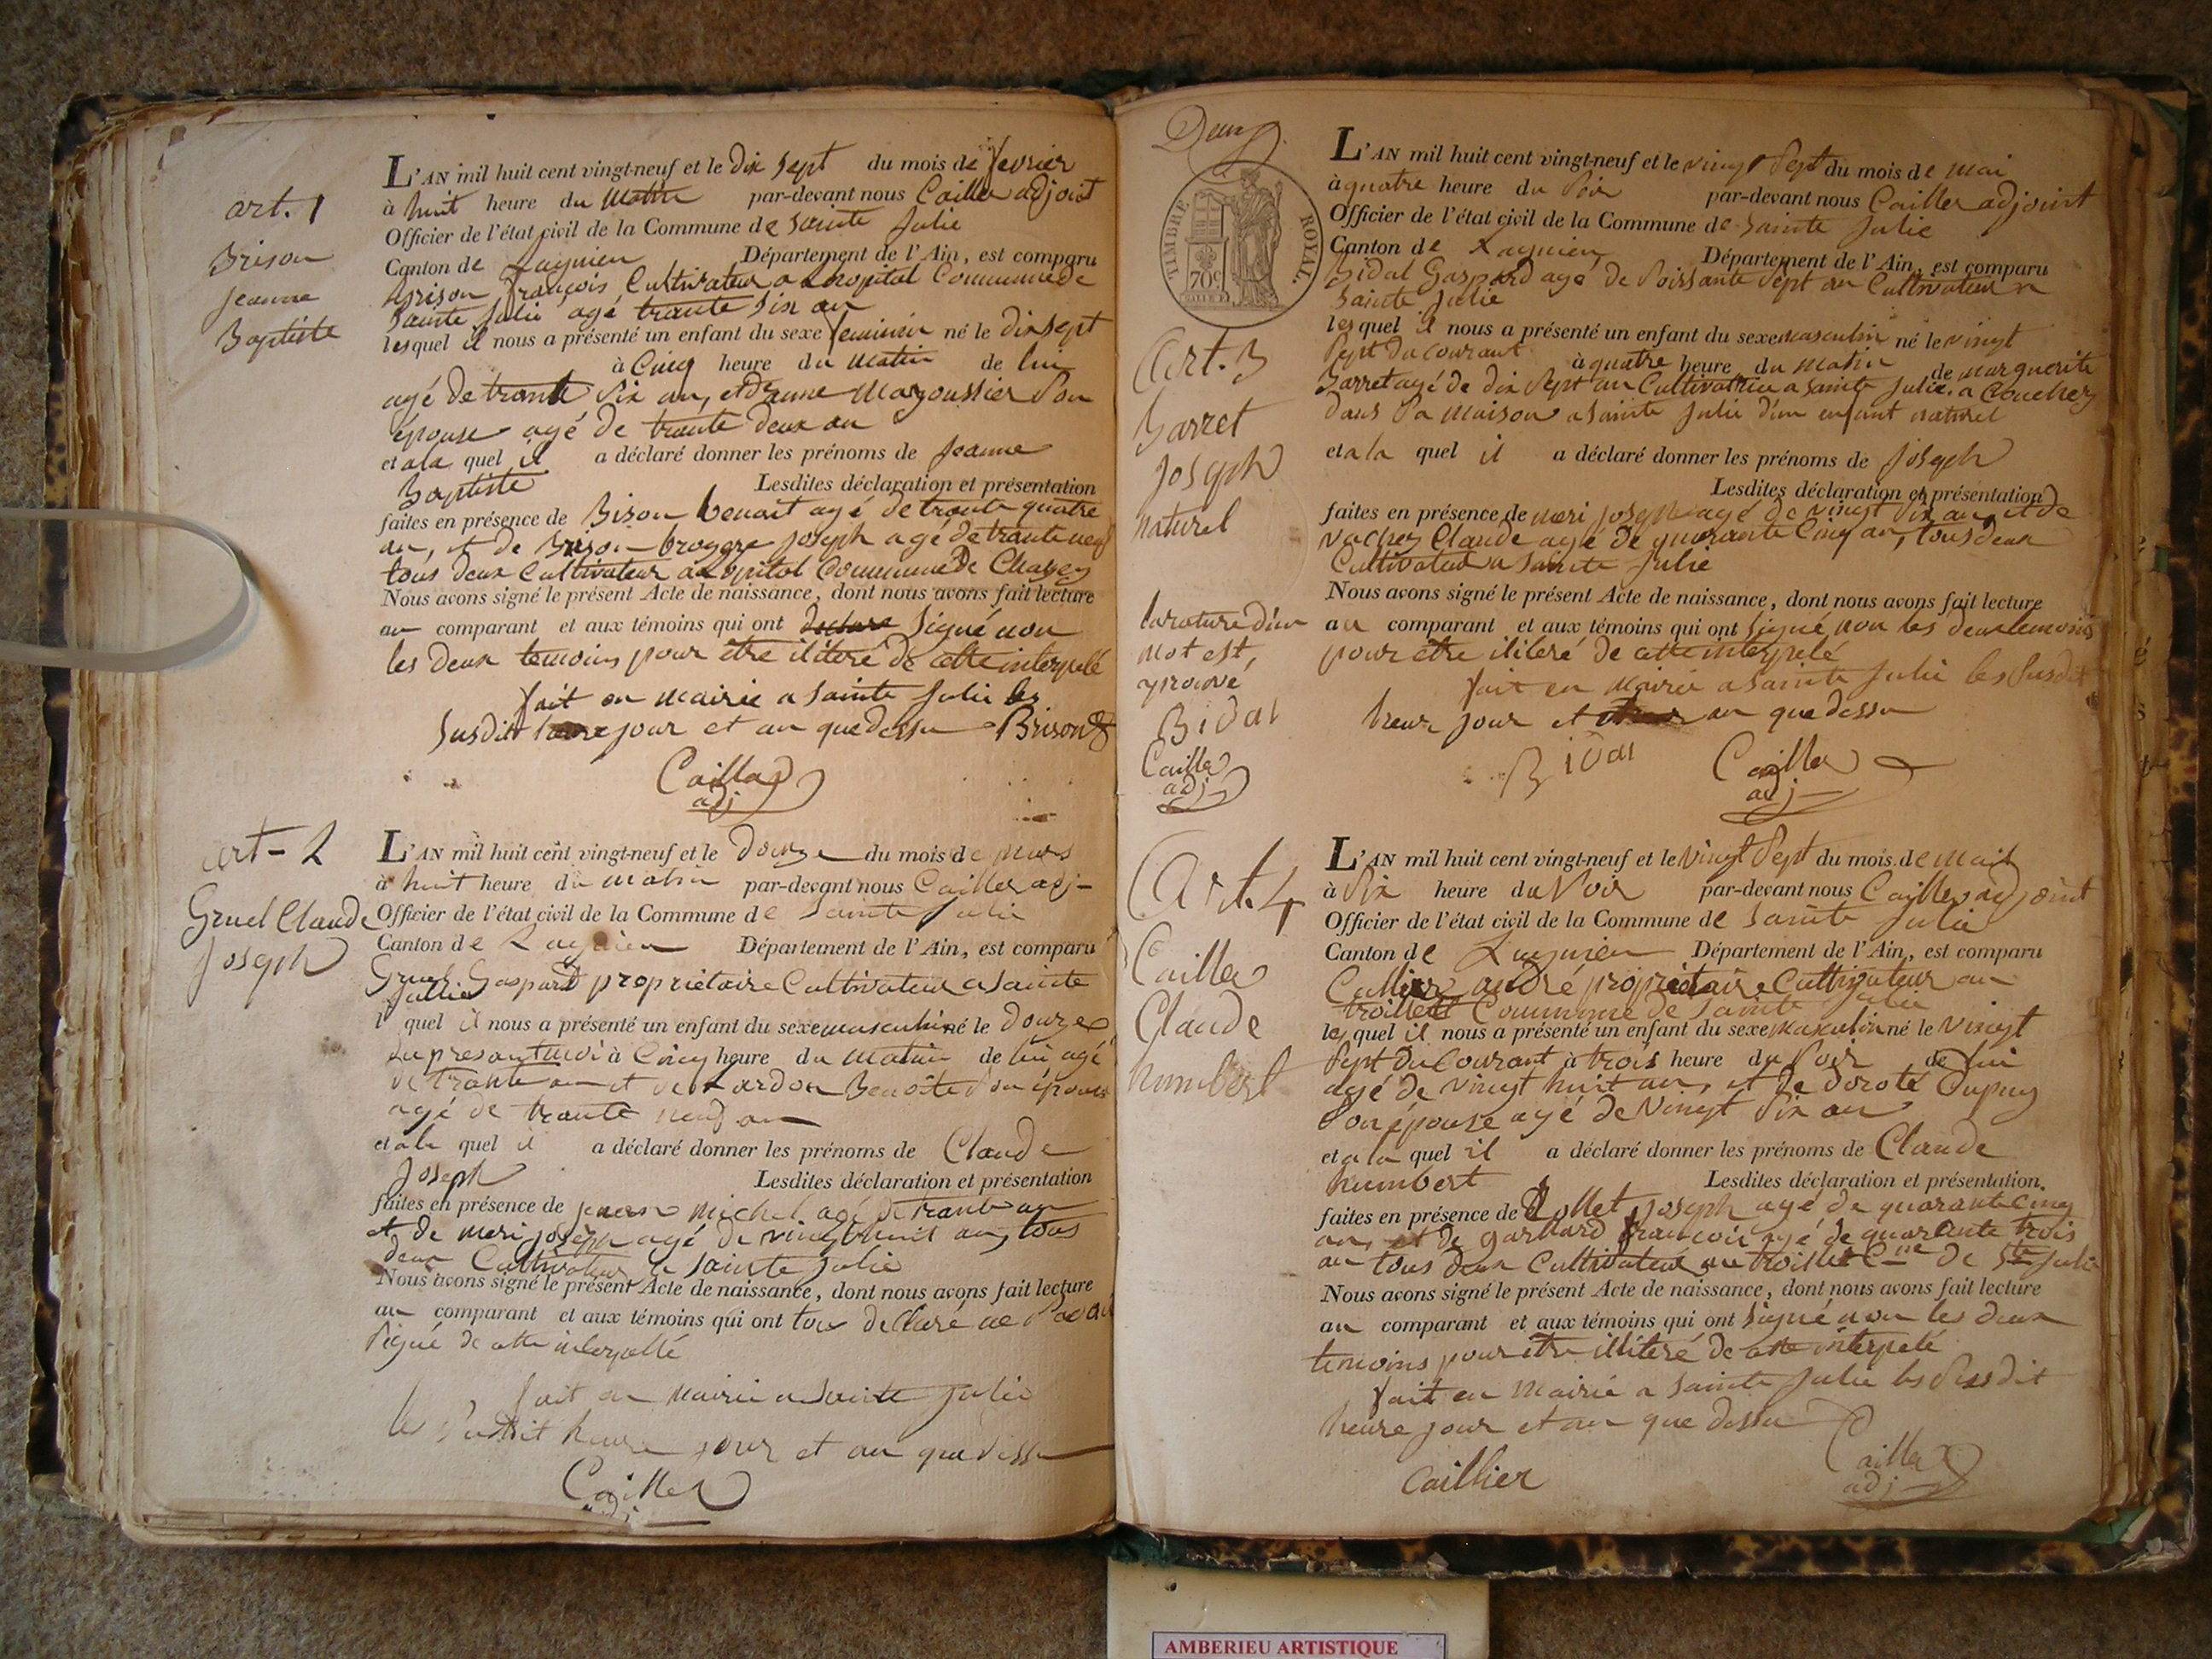 art. 1
Brison
jeanne
Baptiste
L'AN mil huit cent vingt-neuf et le dix sept du mois de fevrier
à huit heure du matin par-devant nous Cailler adjoint
Officier de l'état civil de la Commune de Sainte Julie
Canton de Lagnieu Département de l'Ain, est comparu
brison françois Cultivateur a Lhopital Commune de
Sainte Julie agé trante six an
lesquel il nous a présenté un enfant du sexe feminin né le dix sept
à Cinq heure du matin de lui
agé de trante six an, et danne Marjoussier son
épouse agé de trante deux an
et a la quel il a déclaré donner les prénoms de jeanne
Baptiste Lesdites déclaration et présentation
faites en présence de Bison benoit agé de trante quatre
an, et de Brison broyere joseph agé de trante neuf
tous deux Cultivateur a Lopital Commune De Chazey
Nous avons signé le présent Acte de naissance, dont nous avons fait lecture
au comparant et aux témoins qui ont signé non
les deux temoins pour être ilitéré de cette interpelé
fait en mairie a Sainte Julie les
Susdit heure jour et an que dessu Brison
Cailler
adj
art - 2
Gruel Claude
joseph
L'AN mil huit cent vingt-neuf et le douze du mois de mars
à huit heure du matin par-devant nous Cailler adj
Officier de l'état civil de la Commune de Sainte Julie
Canton de Lagnieu Département de l'Ain, est comparu
Gruel Gaspard propriétaire Cultivateur a Sainte
Jullie
l quel il nous a présenté un enfant du sexe masculin né le douze
du presant moi à Cinq heure du matin de lui agé
de trante an et de Lardon Benoite son épouse
agé de trante neuf an
et a la quel il a déclaré donner les prénoms de Claude
joseph Lesdites déclaration et présentation
faites en présence de michel agé de trante an
et de meri joseph agé de vingt huit an, tous
deux Cultivateur a Sainte Julie
Nous avons signé le présent Acte de naissance, dont nous avons fait lecture
au comparant et aux témoins qui ont tous déclaré ne
signé de cette interpellé
fait en mairie a Sainte Julie
les susdit heure jour et an que dessu
Cailler
adj
Deux
TIMBRE ROYAL.
70c
Art. 3
Barret
joseph
naturel
L'AN mil huit cent vingt-neuf et le vingt sept du mois de mai
à quatre heure du soir par-devant nous Cailler adjoint
Officier de l'état civil de la Commune de Sainte Julie
Canton de Lagnieu Département de l'Ain, est comparu
Bidal Gaspard agé de soissante sept an Cultivateur a
Sainte Julie
lesquel il nous a présenté un enfant du sexe masculin né le vingt
sept du courant à quatre heure du matin de marguerite
Barret agé de dix sept an Cultivatrice a Sainte Julie. a couchez
dans sa maison a Sainte Julie d'un enfant naturel
et a la quel il a déclaré donner les prénoms de joseph
Lesdites déclaration et présentation
faites en présence de meri joseph agé de vingt six an, et de
vachez Claude agé de quarante Cinq an, tous deux
Cultivateur a Sainte Julie
Nous avons signé le présent Acte de naissance, dont nous avons fait lecture
au comparant et aux témoins qui ont signé non les deux temoins
pour etre ilitéré de cette interpelé
fait en mairie a Sainte Julie les susdit
heur jour et an que dessu
Bidal Cailler
adj
la rature d'un
mot est,
aprouvé
Bidal
Cailler
adj
Art. 4
Cailler
Claude
humbert
L'AN mil huit cent vingt-neuf et le vingt sept du mois de mai
à six heure du soir par-devant nous Cailler adjoint
Officier de l'état civil de la Commune de Sainte Julie
Canton de Lagnieu Département de l'Ain, est comparu
Caillier andré propriétaire Cultivateur au
troillet Commune de Sainte Julie
lesquel il nous a présenté un enfant du sexe masculin né le vingt
sept du Courant à trois heure du soir de lui
agé de vingt huit an, et de doroté Dupuy
son épouse agé de vingt six an
et a la quel il a déclaré donner les prénoms de Claude
humbert Lesdites déclaration et présentation.
faites en présence de Rollet joseph agé de quarante cinq
an, et de garbard françois agé de quarante trois
an tous deux Cultivateur au troillet Cne de Ste Julie
Nous avons signé le présent Acte de naissance, dont nous avons fait lecture
au comparant et aux témoins qui ont signé non les deux
temoins pour etre illiteré de cette interpelé
fait en mairie a Sainte Julie les susdit
heure jour et an que dessu
Caillier Cailler
adj
AMBERIEU ARTISTIQUE